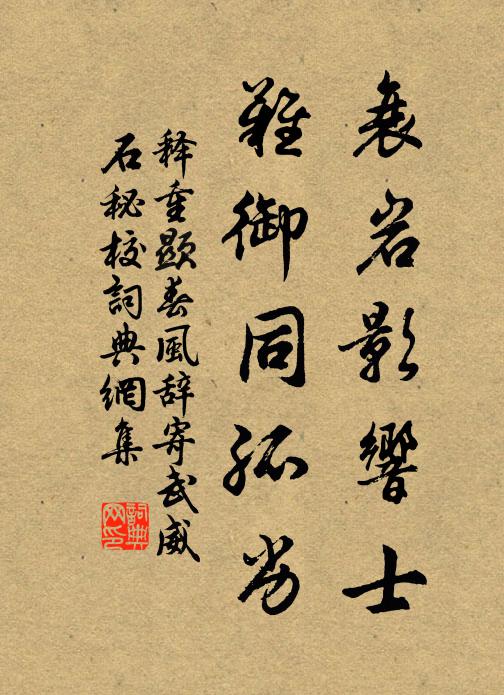 衰岩影響士
難御同孤劣
释重顯春風辞寄武威
石秘校詞典網集
詞典網印